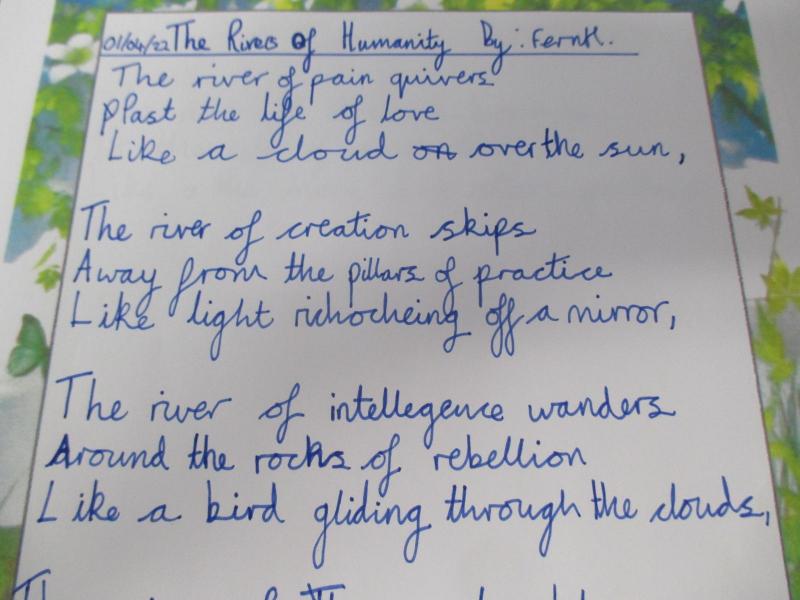 01/04/22 The Rivers of Humanity By: FernH.
The river of pain quivers
Past the life of love
Like a cloud on over the sun,
The river of creation skips
Away from the pillars of practice
Like light richocheing off a mirror,
The river of intellegence wanders
Around the rocks of rebellion
Like a bird gliding through the clouds,